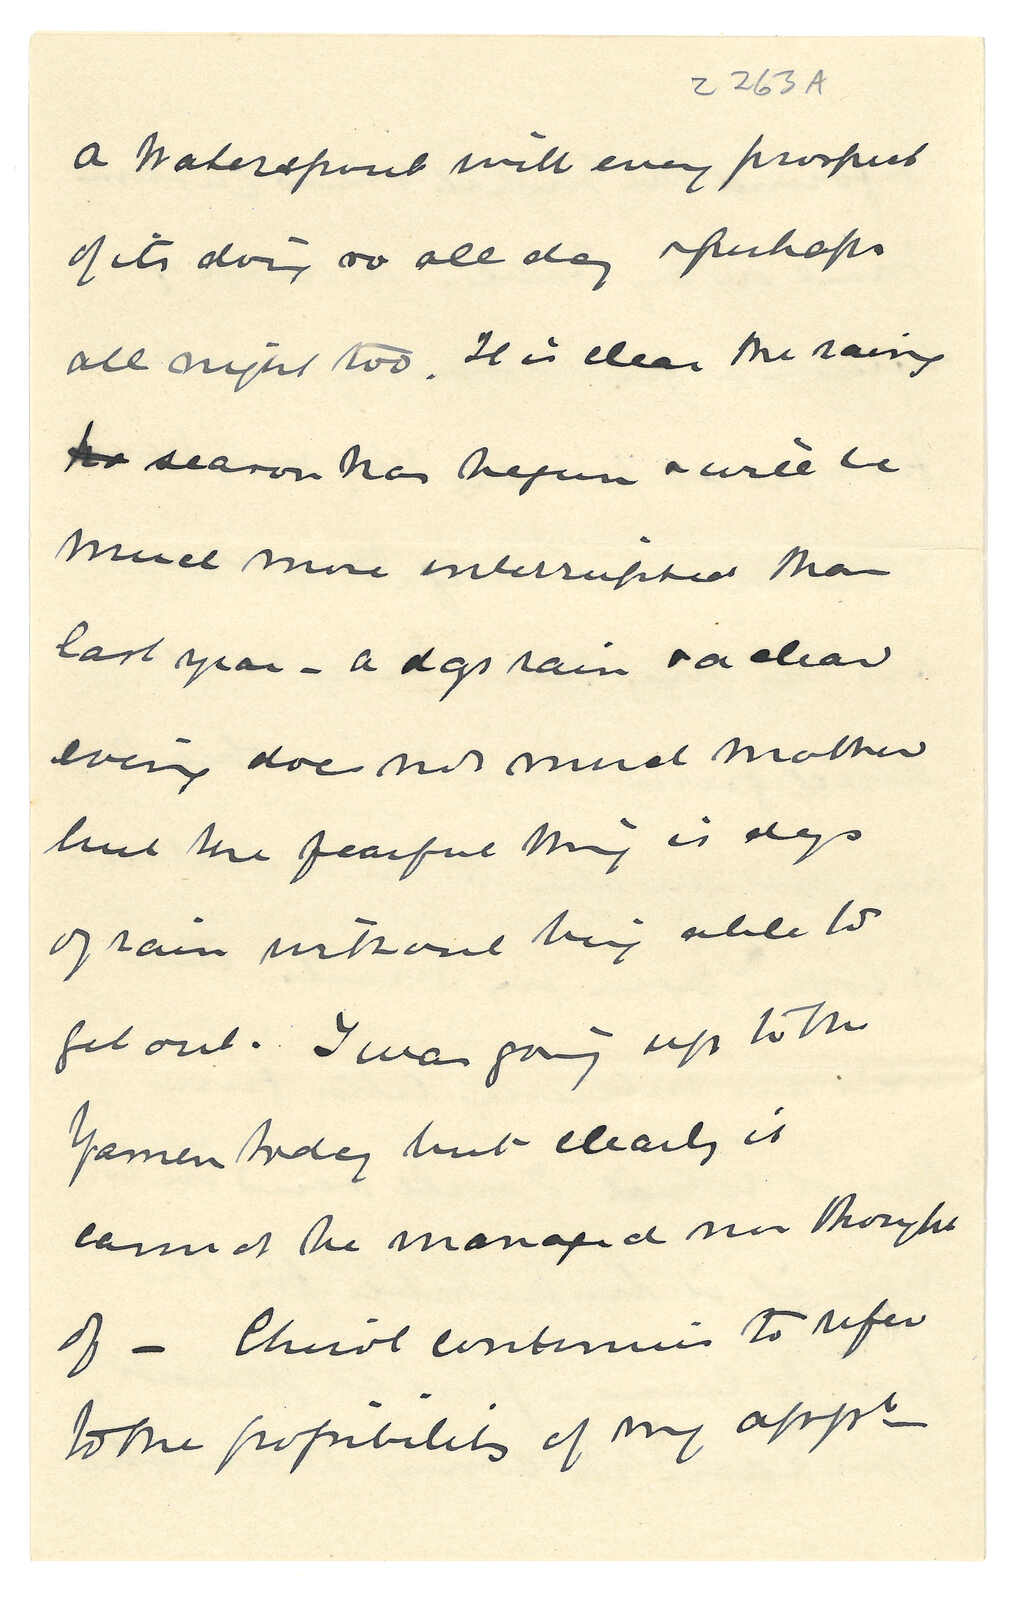 2 263 A
a Waterspout with every prospect
of its doing so all day & perhaps
all night too. It is clear the rainy
ha season has begun & will be
much more interrupted than
last year – a dys rain & a clear
evening does not much matter
but the fearful thing is days
of rain without being able to
get out. I was going up to the
Yamen today but clearly it
cannot be managed nor thought
of – Chirol continues to refer
to the possibility of my apptt